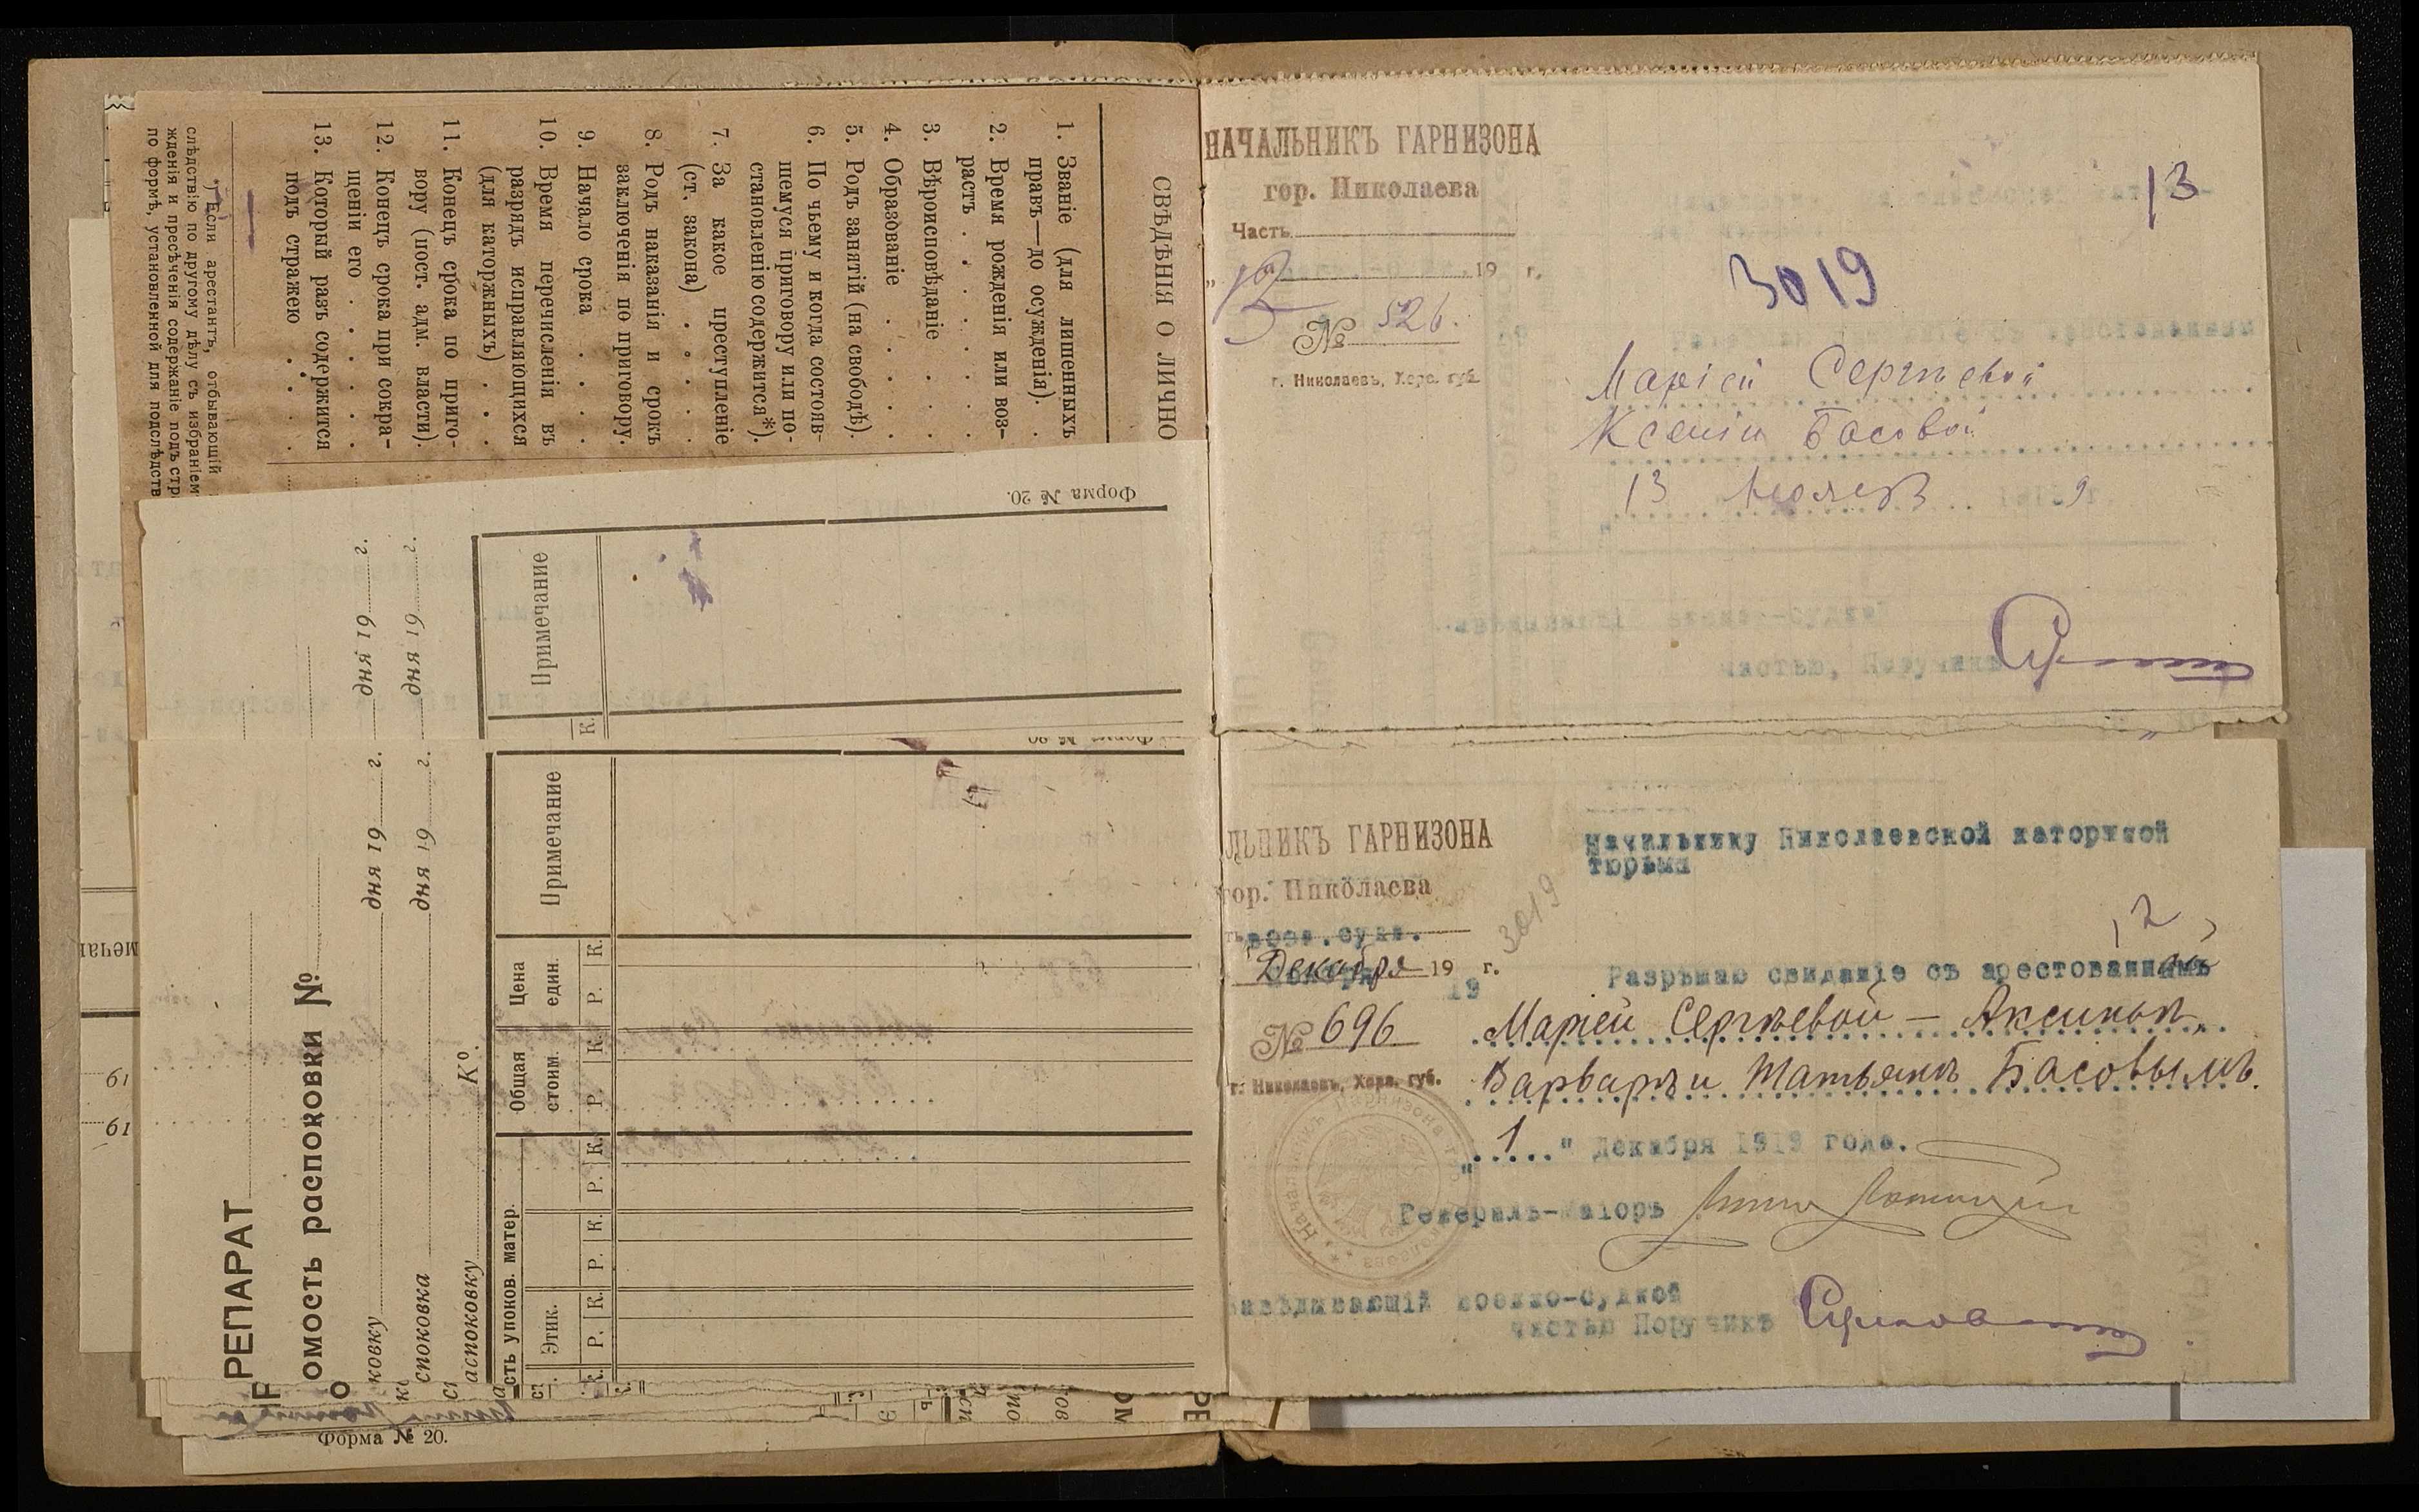 СВѢДѢНІЯ О ЛИЧНО
1. Званіе (для лишенныхъ
правъ—до осужденія). .
2. Время рожденія или воз-
растъ . . . . . .
3. Вѣроисповѣданіе . .
4. Образованіе . . . .
5. Родъ занятій (на свободѣ).
6. По чьему и когда состояв-
шемуся приговору или по-
становленію содержится*).
7. За какое преступленіе
(ст. закона) . . . .
8. Родъ наказанія и срокъ
заключенія по приговору.
9. Начало срока . . . .
10. Время перечисленія въ
разрядъ исправляющихся
(для каторжныхъ) . . .
11. Конецъ срока по приго-
вору (пост. адм. власти).
12. Конецъ срока при сокра-
щеніи его . . . . .
13. Который разъ содержится
подъ стражею . . . .
*) Если арестантъ, отбывающій
слѣдствію по другому дѣлу съ избраніем
жденія и пресѣченія содержаніе подъ стр
по формѣ, установленной для подслѣдств
Форма № 20.
дня 19 г.
дня 19 г.
Примечание
К.
РЕПАРАТ
омость распоковки №
ковку дня 19 г.
споковка дня 19 г.
аспоковку К°.
сть упоков. матер.
Общая стоим.
Цена един.
Примечание
Этик.
К. Р. К. Р. К. Р. К. Р. К. Р. К.
Форма № 20.
НАЧАЛЬНИКЪ ГАРНИЗОНА
гор. Николаева
Часть
19 г.
№ 526.
г. Николаевъ, Херс. губ.
13
3019
Маріей Сергѣевой
Ксеніи Басовой
13
9
частью, Поручикъ
ЛЬНИКЪ ГАРНИЗОНА
гор. Николаева
воен. судн.
Декабря 19 г.
19
№ 696
г. Николаевъ, Херс. губ.
3019
Начальнику Николаевской каторжной
тюрьмы
12
Разрѣшаю свиданіе съ арестованным
Маріей Сергѣевой — Аксиньѣ,
Варварѣ и Татьянѣ Басовымъ.
"1" Декабря 1919 года.
Генералъ-Маіоръ
Завѣдывающій военно-судной
частью Поручикъ